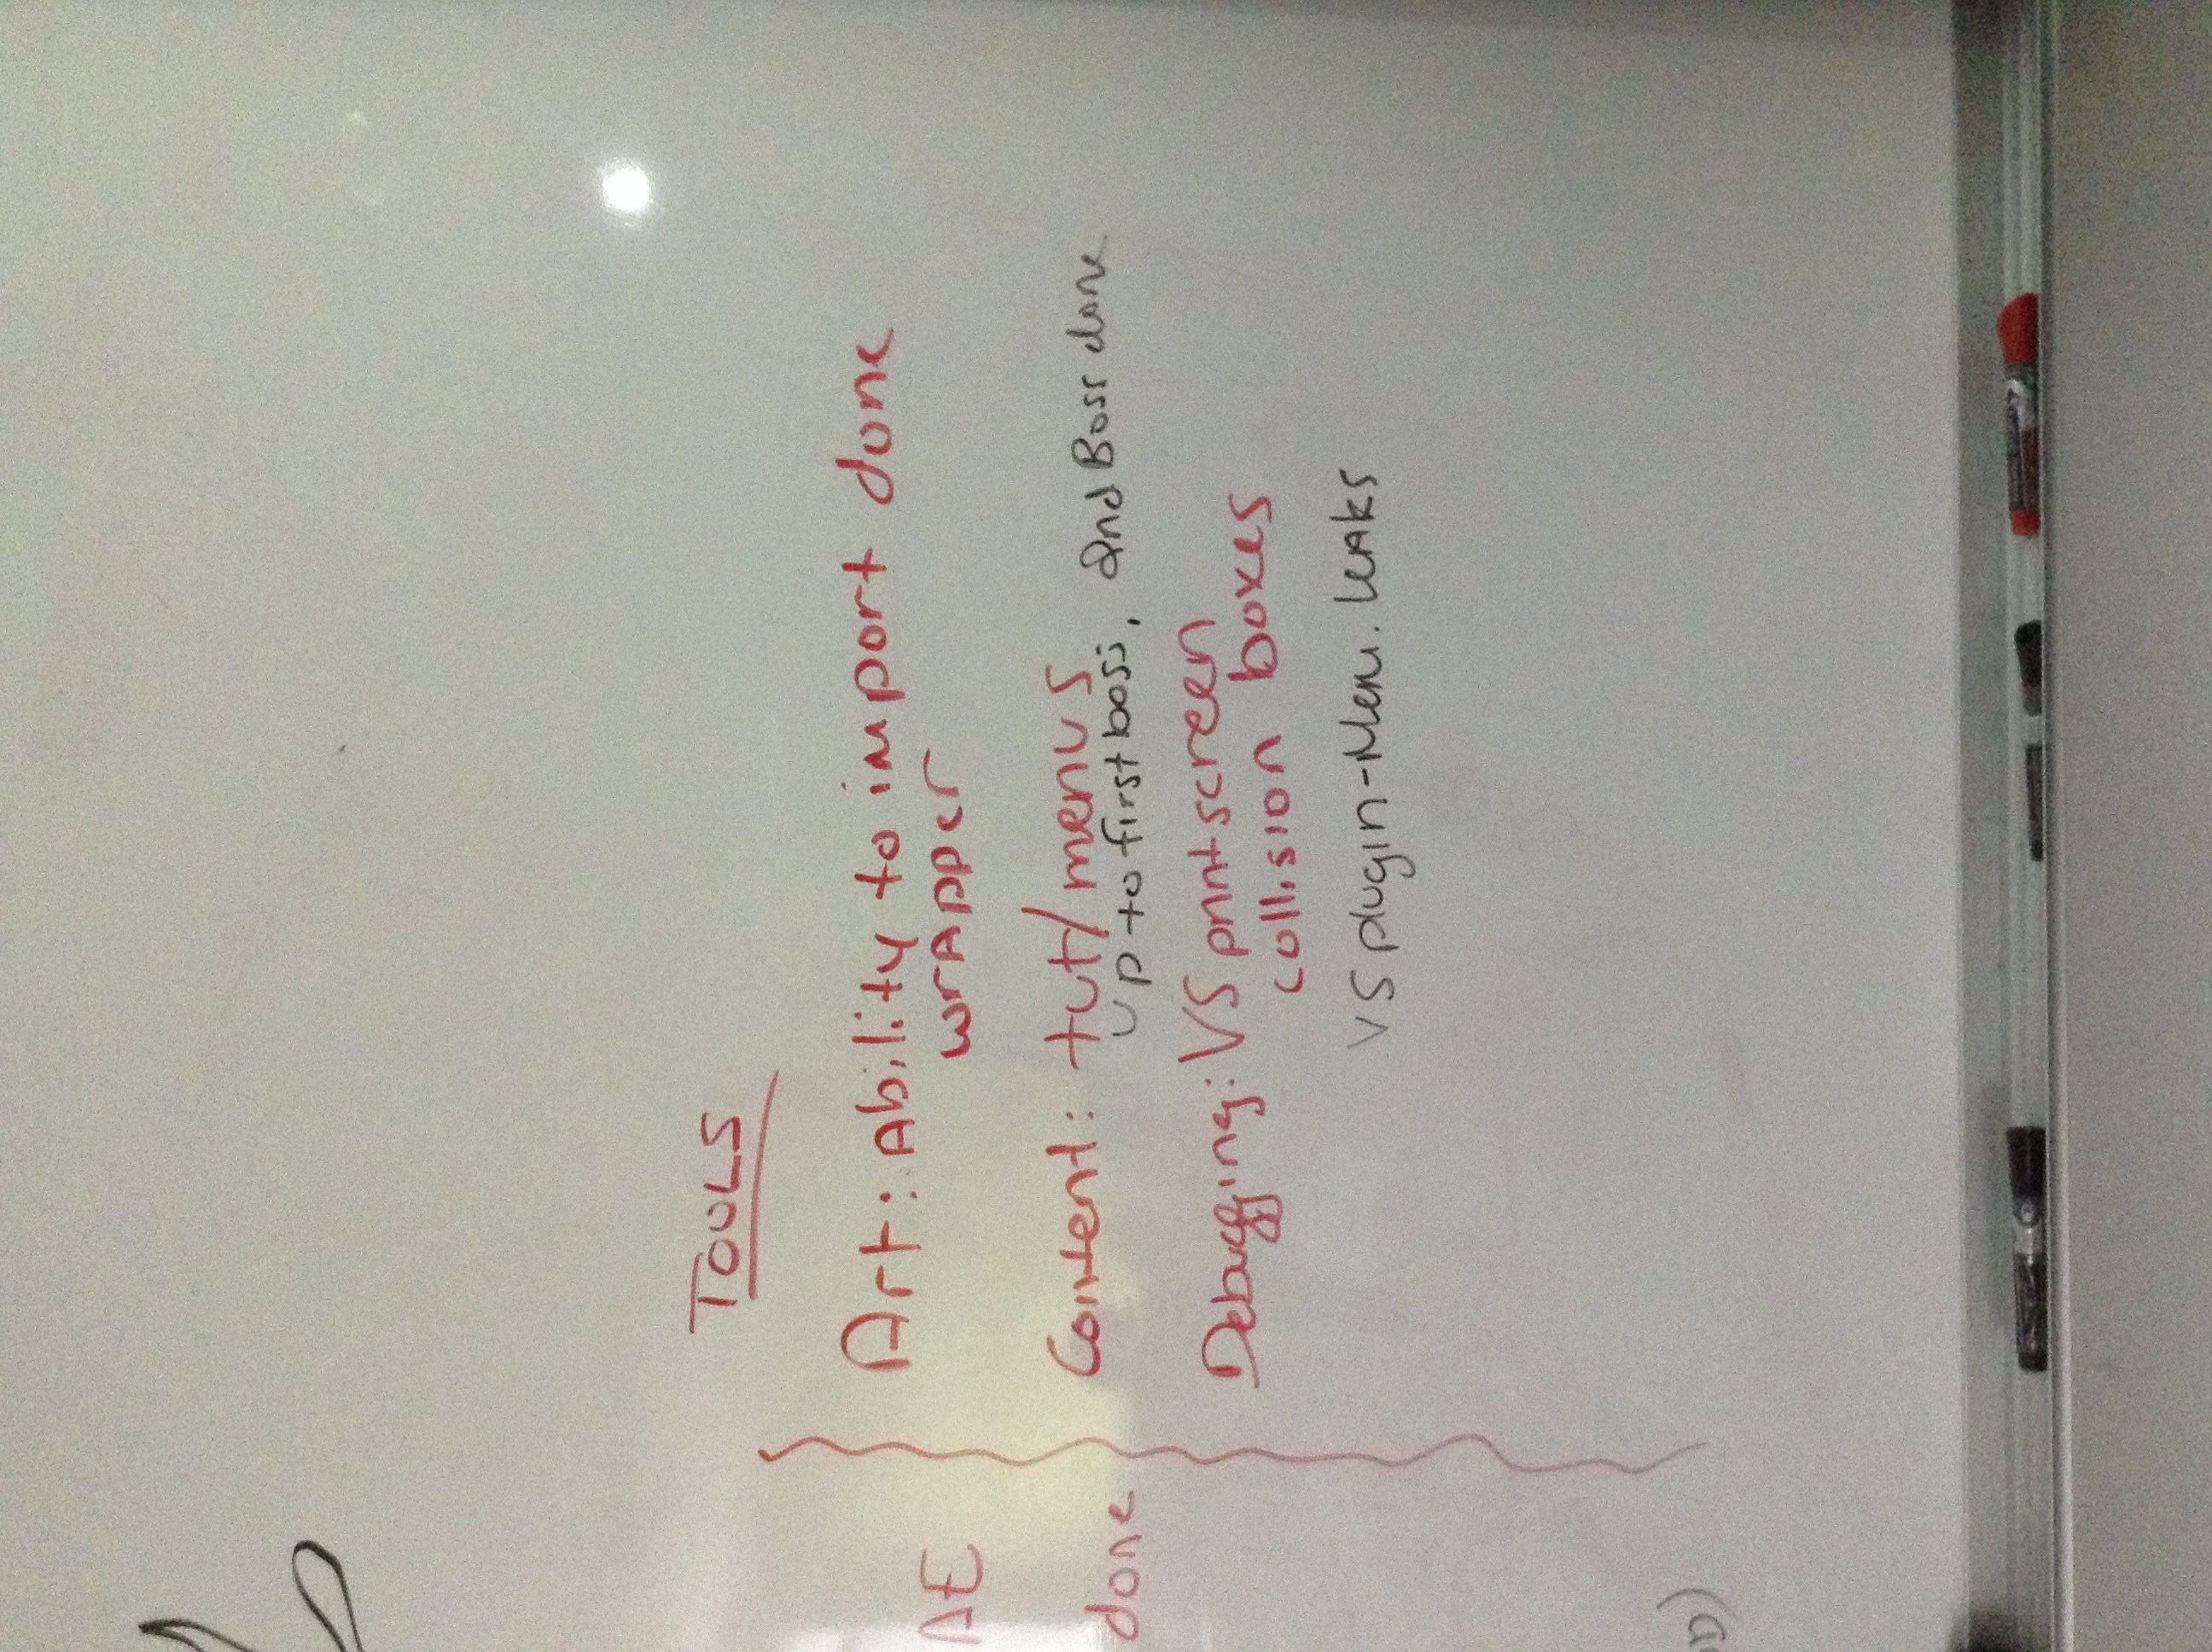 TOOLS
Art: Ability to import done
wrapper
AE
Content: tut/menus
up to first boss, 2nd Boss done
done
Debugging: VS printscreen
collision boxes
VS plugin-Mem. leaks
D)